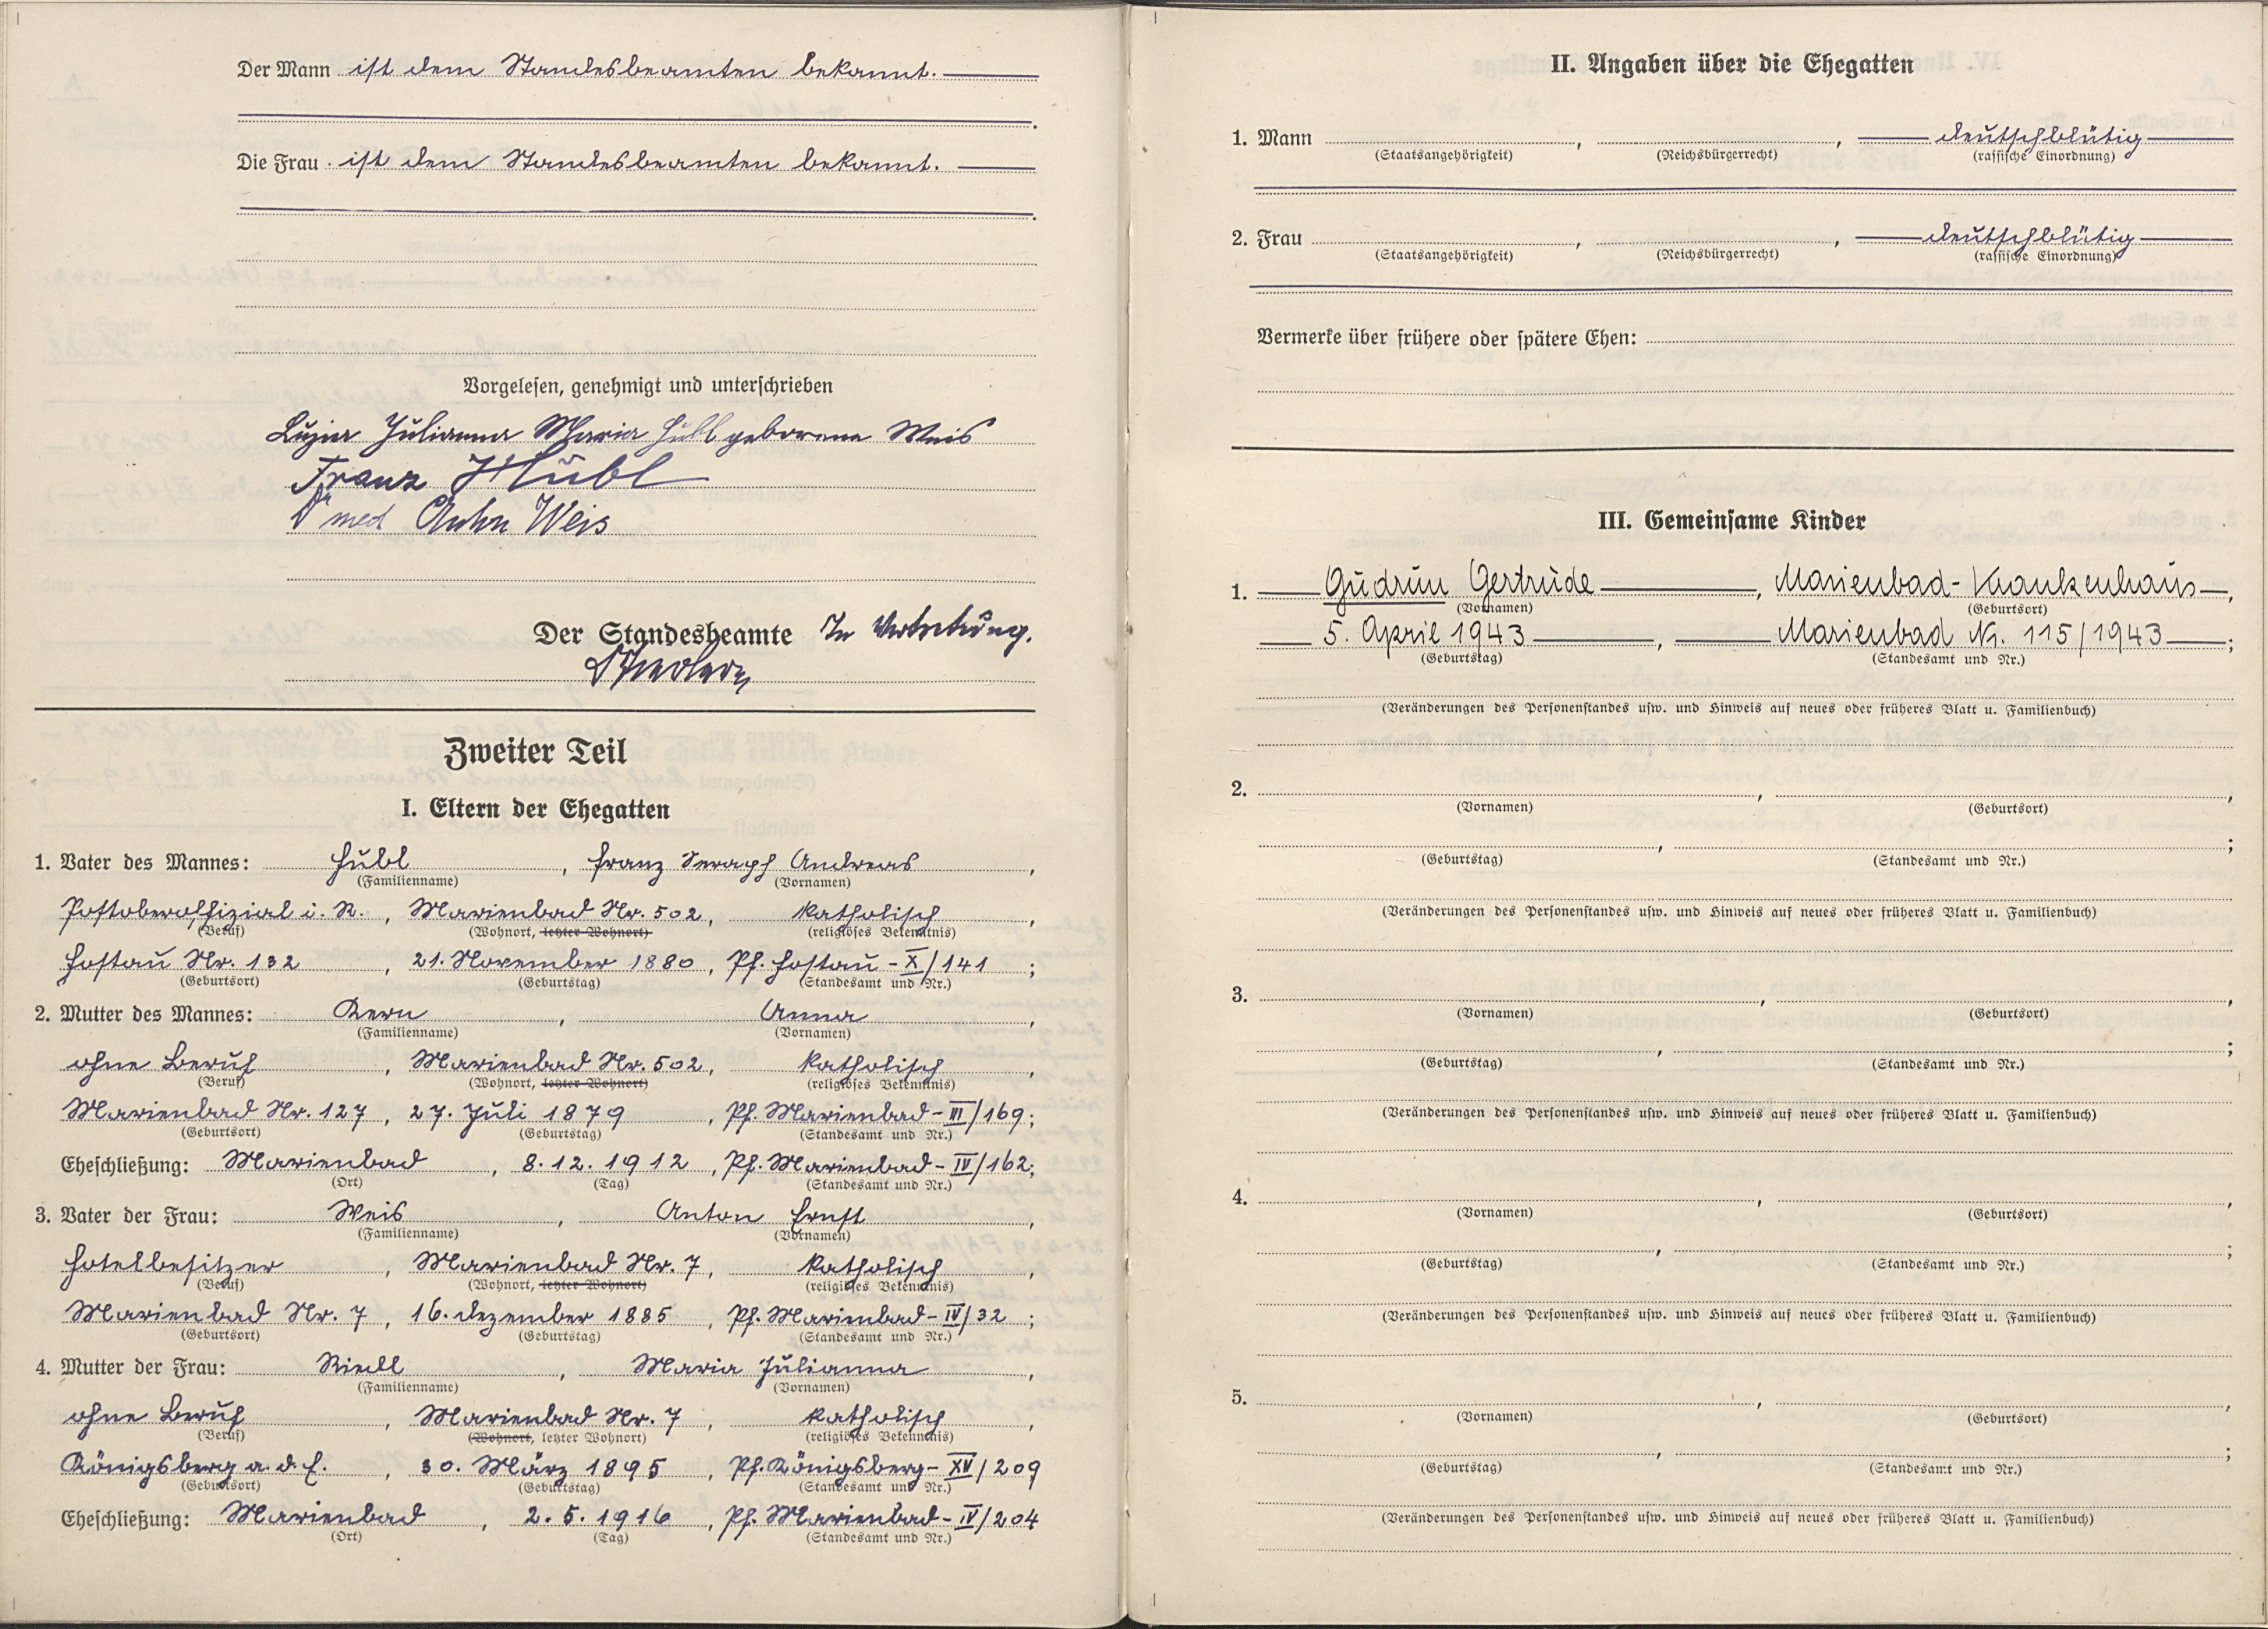 Der Mann ist dem Standesbeamten bekannt.
Die Frau ist dem Standesbeamten bekannt.
Vorgelesen, genehmigt und unterschrieben
Luzia Julianna Maria Hübl geborene Weis
Franz Hübl
Dr med Anton Weis
Der Standesbeamte In Vertretung.
Zweiter Teil
I. Eltern der Ehegatten
1. Vater des Mannes: Hübl, Franz Seraph Andreas,
(Familienname) (Vornamen)
Postoberoffizial i. R., Marienbad Nr. 502, katholisch,
(Beruf) (Wohnort, letzter Wohnort) (religiöses Bekenntnis)
Hostau Nr. 132, 21. November 1880, Pf. Hostau - X/141;
(Geburtsort) (Geburtstag) (Standesamt und Nr.)
2. Mutter des Mannes: Kern, Anna,
(Familienname) (Vornamen)
ohne Beruf, Marienbad Nr. 502, katholisch,
(Beruf) (Wohnort, letzter Wohnort) (religiöses Bekenntnis)
Marienbad Nr. 127, 27. Juli 1879, Pf. Marienbad - III/169;
(Geburtsort) (Geburtstag) (Standesamt und Nr.)
Eheschließung: Marienbad, 8.12.1912, Pf. Marienbad - IV/162;
(Ort) (Tag) (Standesamt und Nr.)
3. Vater der Frau: Weis, Anton Ernst,
(Familienname) (Vornamen)
Hotelbesitzer, Marienbad Nr. 7, katholisch,
(Beruf) (Wohnort, letzter Wohnort) (religiöses Bekenntnis)
Marienbad Nr. 7, 16. Dezember 1885, Pf. Marienbad - IV/32;
(Geburtsort) (Geburtstag) (Standesamt und Nr.)
4. Mutter der Frau: Riedl, Maria Julianna,
(Familienname) (Vornamen)
ohne Beruf, Marienbad Nr. 7, katholisch,
(Beruf) (Wohnort, letzter Wohnort) (religiöses Bekenntnis)
Königsberg a. d. E., 30. März 1895, Pf. Königsberg - XV/209
(Geburtsort) (Geburtstag) (Standesamt und Nr.)
Eheschließung: Marienbad, 2.5.1916, Pf. Marienbad - IV/204
(Ort) (Tag) (Standesamt und Nr.)
II. Angaben über die Ehegatten
1. Mann , , deutschblütig
(Staatsangehörigkeit) (Reichsbürgerrecht) (rassische Einordnung)
2. Frau , , deutschblütig
(Staatsangehörigkeit) (Reichsbürgerrecht) (rassische Einordnung)
Vermerke über frühere oder spätere Ehen:
III. Gemeinsame Kinder
1. Gudrun Gertrude, Marienbad - Krankenhaus,
(Vornamen) (Geburtsort)
5. April 1943, Marienbad Nr. 115/1943;
(Geburtstag) (Standesamt und Nr.)
(Veränderungen des Personenstandes usw. und Hinweis auf neues oder früheres Blatt u. Familienbuch)
2. , ,
(Vornamen) (Geburtsort)
, ;
(Geburtstag) (Standesamt und Nr.)
(Veränderungen des Personenstandes usw. und Hinweis auf neues oder früheres Blatt u. Familienbuch)
3. , ,
(Vornamen) (Geburtsort)
, ;
(Geburtstag) (Standesamt und Nr.)
(Veränderungen des Personenstandes usw. und Hinweis auf neues oder früheres Blatt u. Familienbuch)
4. , ,
(Vornamen) (Geburtsort)
, ;
(Geburtstag) (Standesamt und Nr.)
(Veränderungen des Personenstandes usw. und Hinweis auf neues oder früheres Blatt u. Familienbuch)
5. , ,
(Vornamen) (Geburtsort)
, ;
(Geburtstag) (Standesamt und Nr.)
(Veränderungen des Personenstandes usw. und Hinweis auf neues oder früheres Blatt u. Familienbuch)